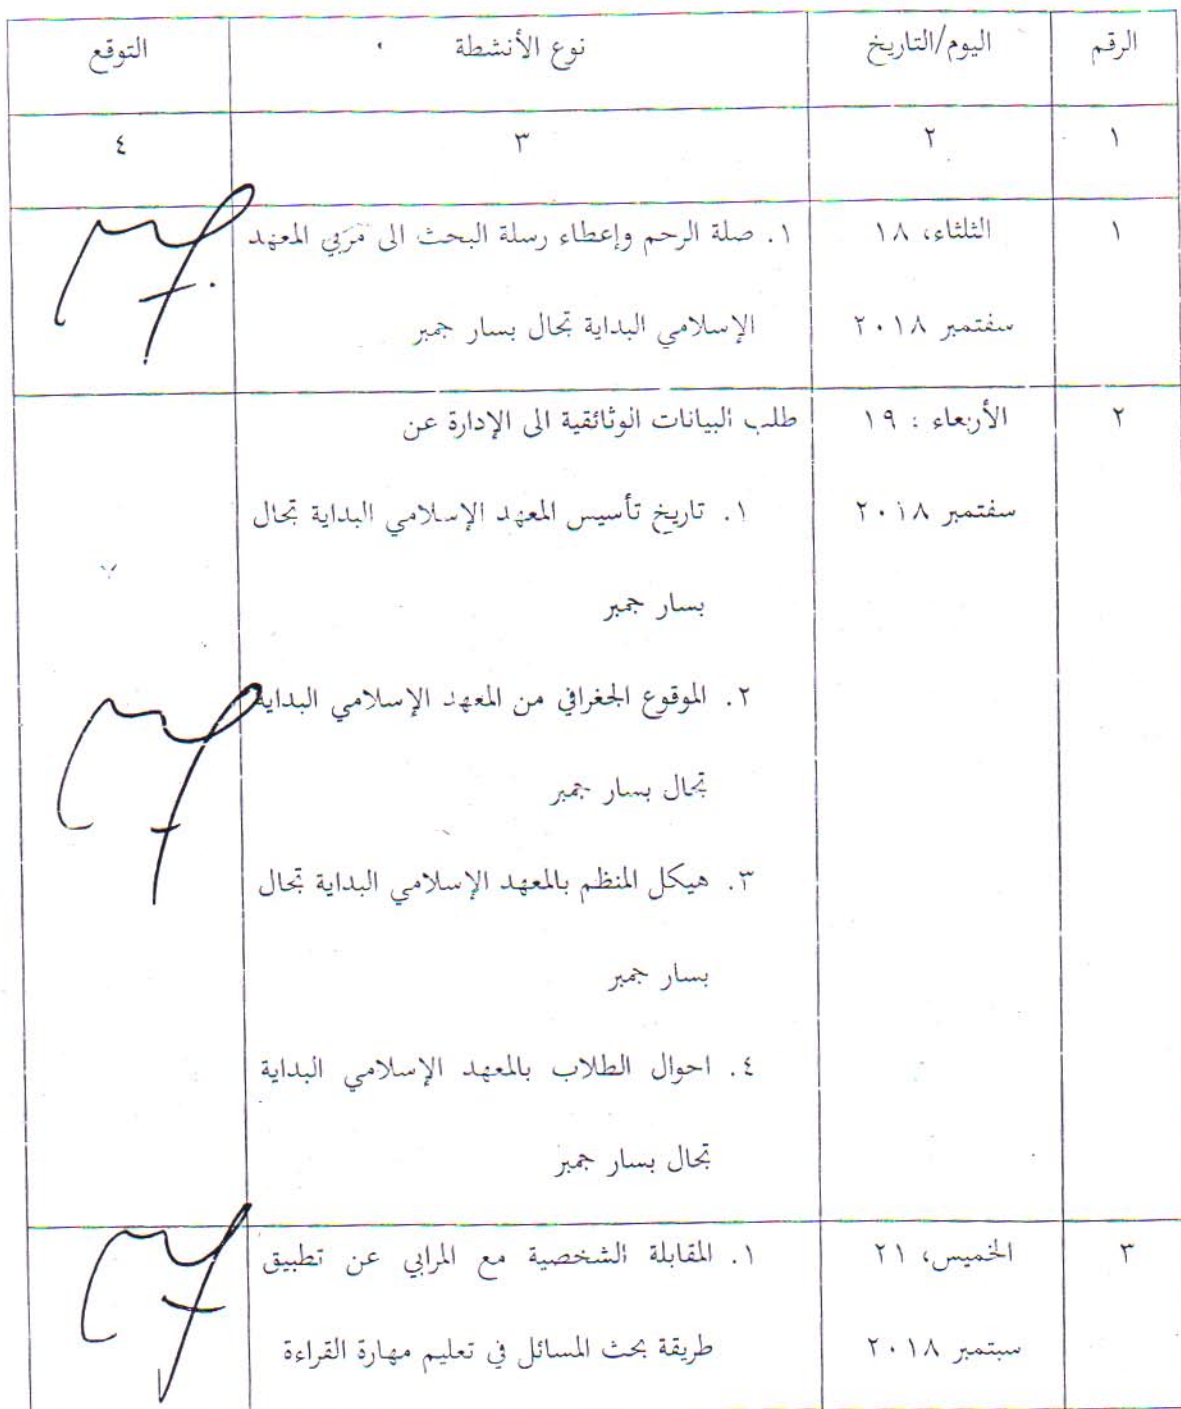 الرقم اليوم/التاريخ نوع الأنشطة التوقع
١ ٢ ٣ ٤
١ الثلثاء، ١٨ ١. صلة الرحم وإعطاء رسلة البحث الى مَرَبي المعهد
سفتمبر ٢٠١٨ الإسلامي البداية تجال بسار جمبر
٢ الأربعاء : ١٩ طلب البيانات الوثائقية الى الإدارة عن
سفتمبر ٢٠١٨ ١. تاريخ تأسيس المعهد الإسلامي البداية تجال
بسار جمبر
٢. الموقوع الجغرافي من المعهد الإسلامي البداية
تجال بسار جمبر
٣. هيكل المنظم بالمعهد الإسلامي البداية تجال
بسار جمبر
٤. احوال الطلاب بالمعهد الإسلامي البداية
تجال بسار جمبر
٣ الخميس، ٢١ ١. المقابلة الشخصية مع المرابي عن تطبيق
سبتمبر ٢٠١٨ طريقة بحث المسائل في تعليم مهارة القراءة